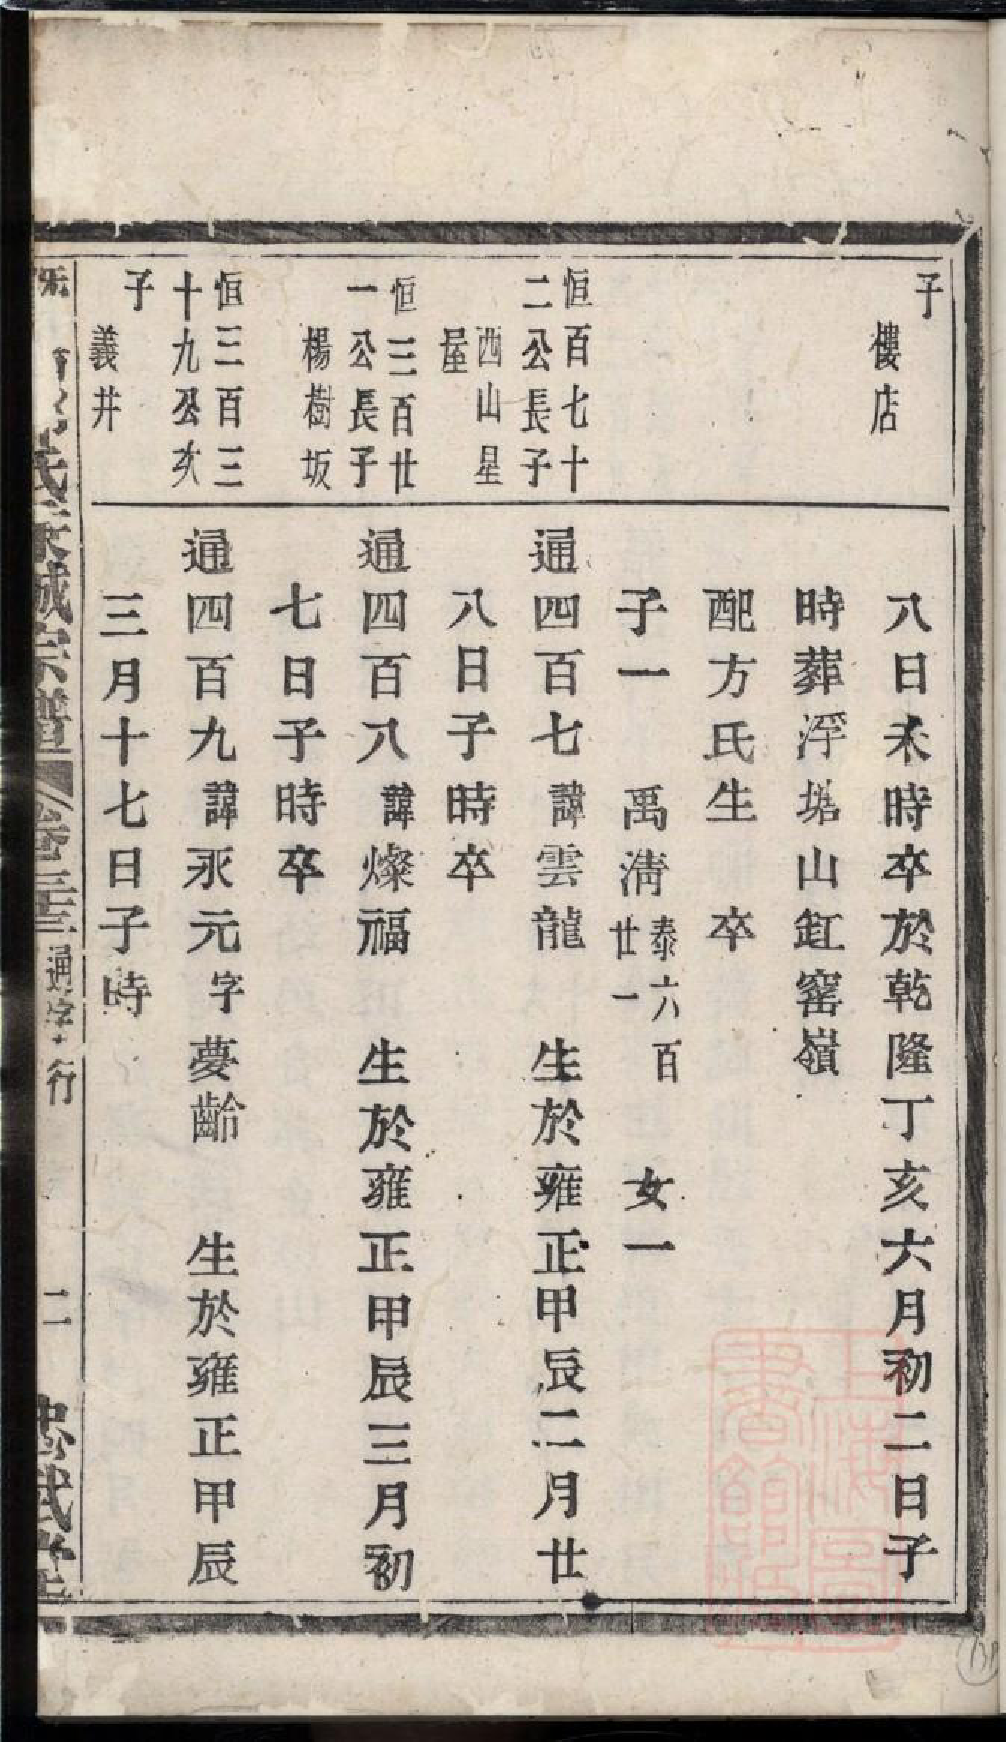 子
樓店
恒百七十
二公長子
西山星
屋
恒三百廿
一公長子
楊樹坂
恒三百三
十九公次
子
義井
八日未時卒於乾隆丁亥六月初二日子
時葬浮塘山缸窰嶺
配方氏生 卒
子一 禹淸 泰六百
廿一 女一
通四百七諱雲龍 生於雍正甲辰二月廿
八日子時卒
通四百八諱燦福 生於雍正甲辰三月初
七日子時卒
通四百九諱永元字夢齡 生於雍正甲辰
三月十七日子時
氏 誠宗譜 卷三十三 通字行 二 忠武堂
上海圖
書館藏